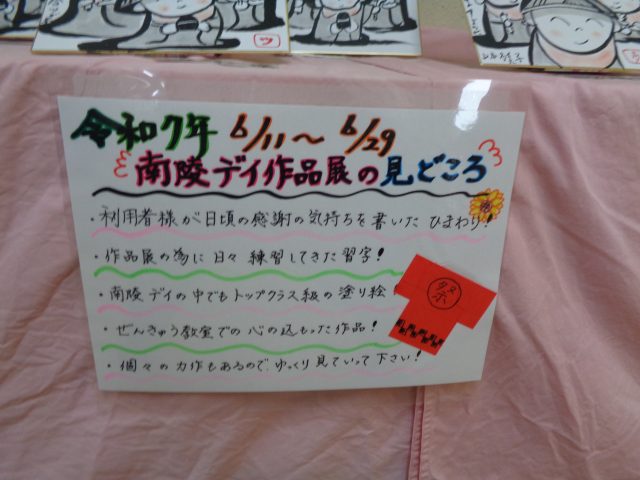 令和7年 6/11～6/29
南陵デイ作品展の見どころ
・利用者様が日頃の感謝の気持ちを書いた ひまわり!
・作品展の為に日々練習してきた習字!
・南陵デイの中でもトップクラス級の塗り絵!
・ぜんきゅう教室での心の込もった作品!
・個々の力作もあるので、ゆっくり見ていって下さい!